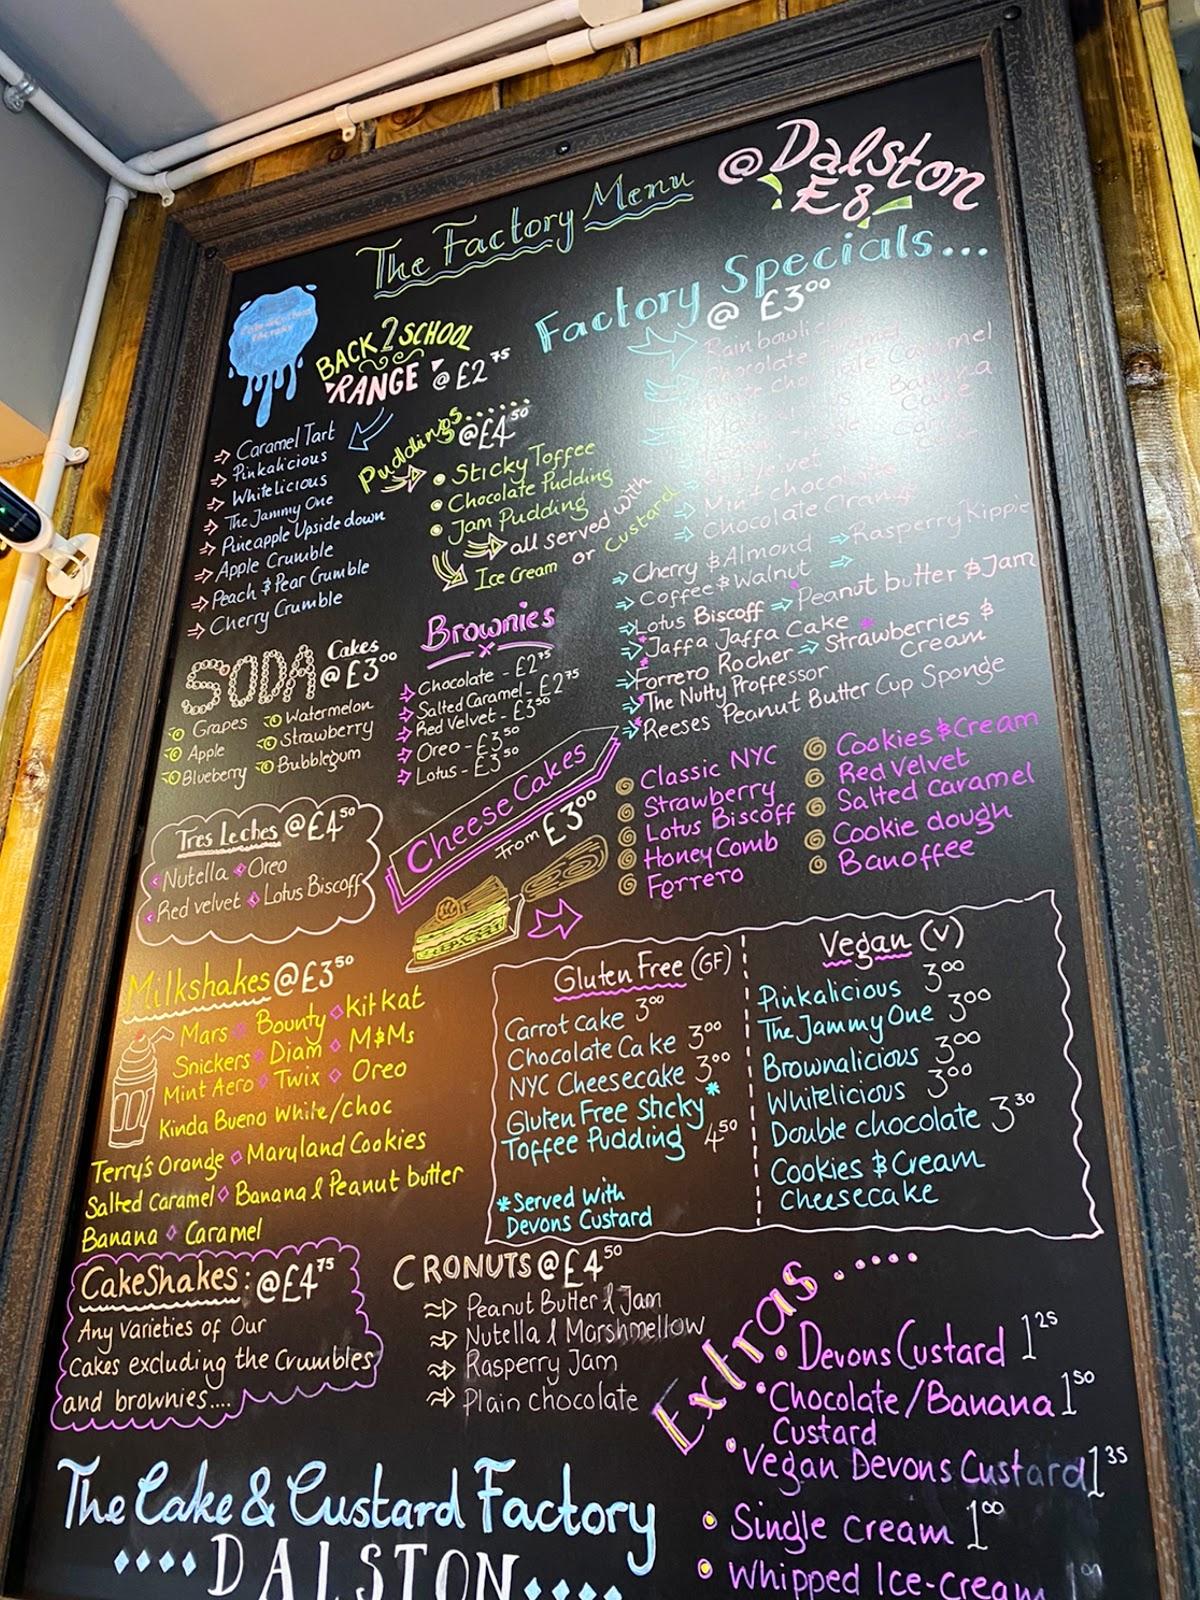 The Factory Menu
@ Dalston
E8
BACK 2 SCHOOL
RANGE @ £2 75
Caramel Tart
Pinkalicious
Whitelicious
The Jammy One
Pineapple Upside down
Apple Crumble
Peach & Pear Crumble
Cherry Crumble
Puddings......
@£4 50
Sticky Toffee
Chocolate Pudding
Jam Pudding
all served with
Ice cream or Custard
Factory Specials...
@ £3 00
Chocolate
Caramel
Banana
Cake
Mint chocolate
Chocolate Orange
Cherry & Almond
Rasperry Ripple
Coffee & Walnut
Lotus Biscoff
Peanut butter & Jam
Jaffa Jaffa Cake
Forrero Rocher
Strawberries &
Cream
The Nutty Proffessor
Reeses Peanut Butter Cup Sponge
SODA Cakes
@ £3 00
Grapes
Watermelon
Apple
Strawberry
Blueberry
Bubblegum
Brownies
Chocolate - £2 75
Salted Caramel - £2 75
Red Velvet - £3 50
Oreo - £3 50
Lotus - £3 50
Cheese Cakes
from £3 00
Classic NYC
Strawberry
Lotus Biscoff
Honey Comb
Ferrero
Cookies & Cream
Red Velvet
Salted Caramel
Cookie dough
Banoffee
Tres Leches @£4 50
Nutella Oreo
Red velvet Lotus Biscoff
Milkshakes @£3 50
Mars Bounty Kit Kat
Snickers Diam M&Ms
Mint Aero Twix Oreo
Kinda Bueno White/choc
Terry's Orange Maryland Cookies
Salted Caramel Banana & Peanut butter
Banana Caramel
Gluten Free (GF)
Carrot cake 3 00
Chocolate Cake 3 00
NYC Cheesecake 3 00
Gluten Free Sticky *
Toffee Pudding 4 50
*Served with
Devons Custard
Vegan (V)
Pinkalicious 3 00
The Jammy One 3 00
Brownalicious 3 00
Whitelicious 3 00
Double chocolate 3 30
Cookies & Cream
Cheesecake
CakeShakes: @£4 75
Any varieties of Our
cakes excluding the Crumbles
and brownies....
CRONUTS @£4 50
Peanut Butter & Jam
Nutella & Marshmellow
Rasperry Jam
Plain chocolate
Extras.....
Devons Custard 1 25
Chocolate/Banana 1 50
Custard
Vegan Devons Custard 1 35
Single cream 1 00
Whipped Ice-cream
The Cake & Custard Factory
DALSTON